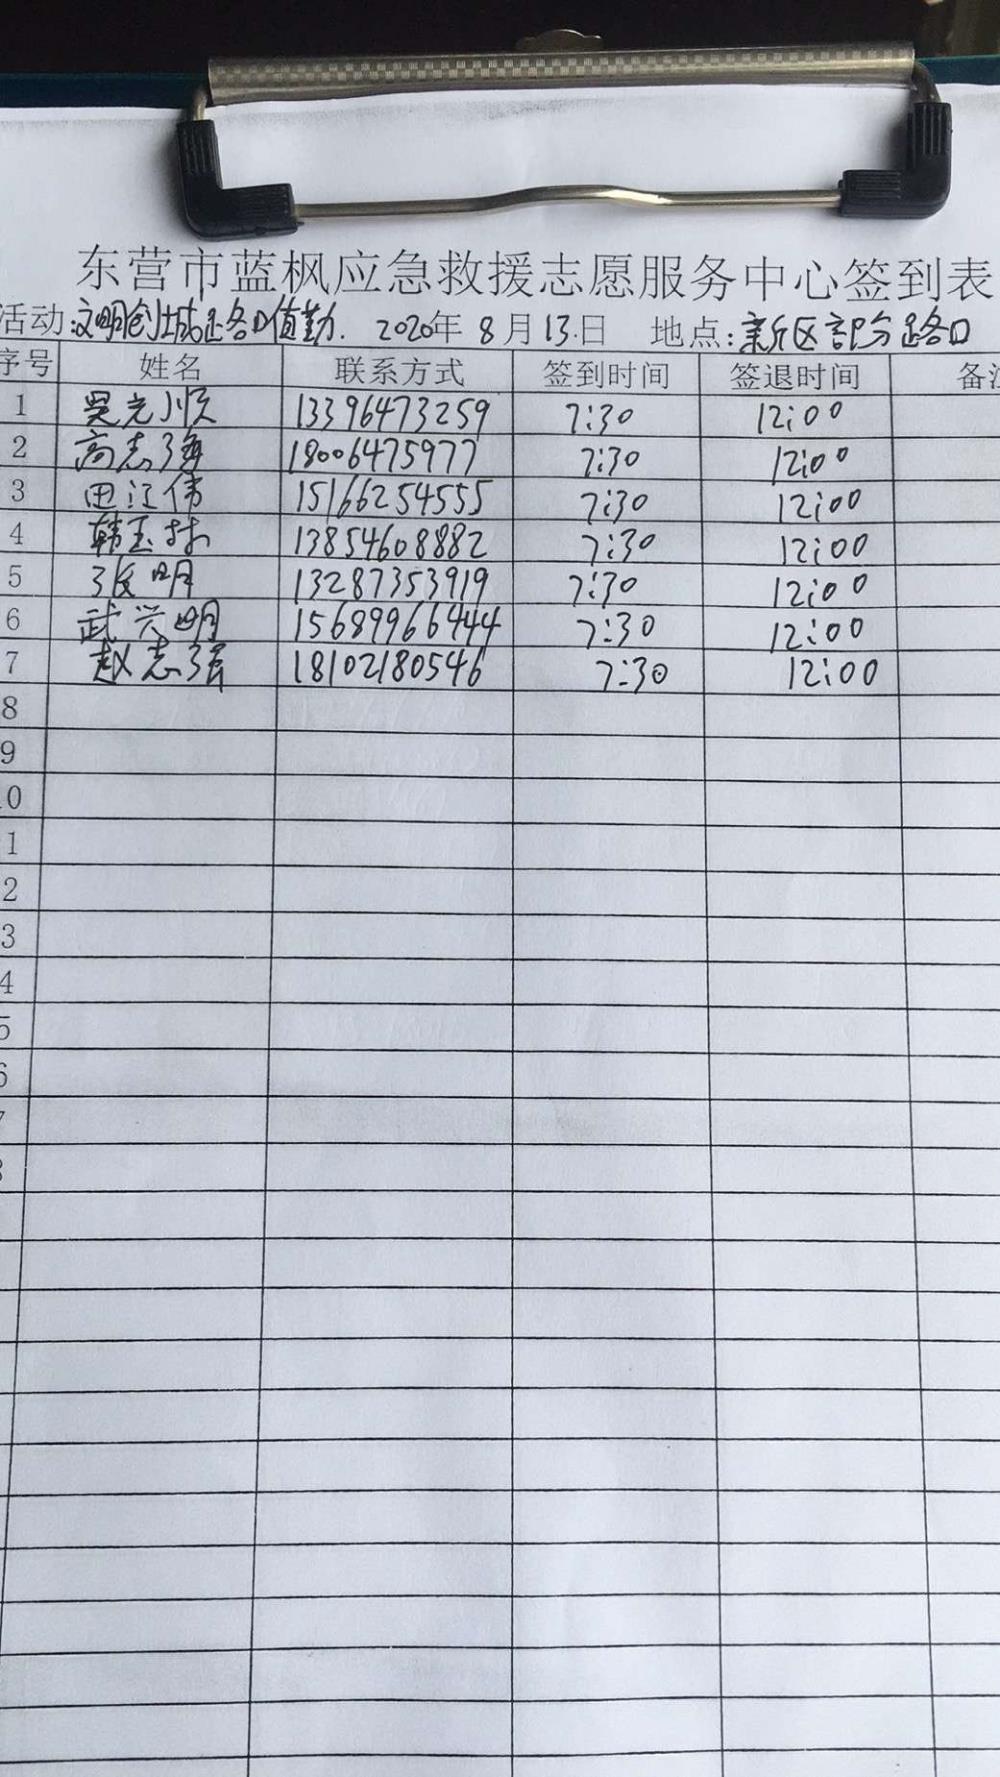 东营市蓝枫应急救援志愿服务中心签到表
活动:文明创城路口值勤. 2020年 8月13日 地点:东区部分路口
序号 姓名 联系方式 签到时间 签退时间 备注
1 吴光顺 13396473259 7:30 12:00
2 高志强 18006475977 7:30 12:00
3 田江伟 15166254555 7:30 12:00
4 韩玉林 13854608882 7:30 12:00
5 张明 13287353919 7:30 12:00
6 武兴明 15689966444 7:30 12:00
7 赵志强 18102180546 7:30 12:00
8
9
10
1
2
3
4
5
6
7
8